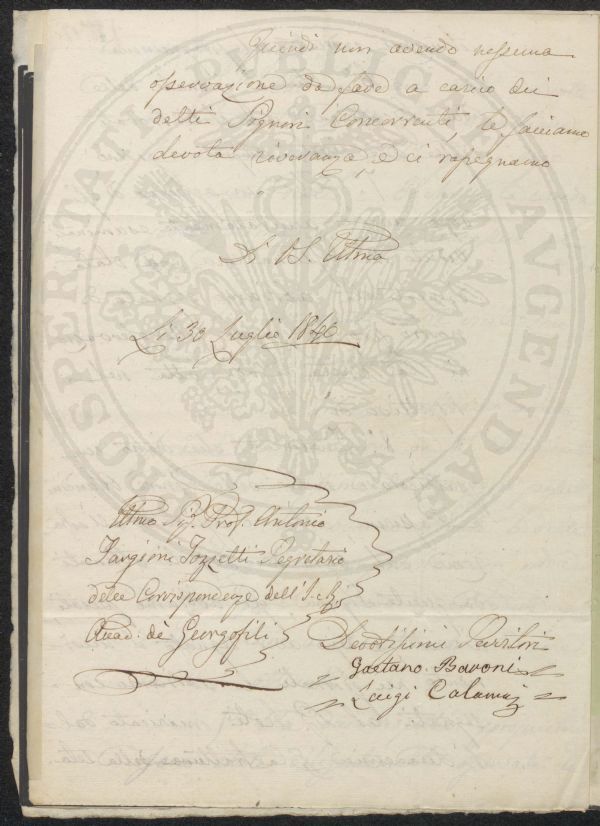 Quindi non avendo nessuna
osservazione da fare a carico dei
detti Signori Concorrenti, le facciamo
devota riverenza, e ci rassegniamo
Di VS. Illma
Li 30 Luglio 1840
Illmo Sig. Prof. Antonio
Targioni Tozzetti Segretario
delle Corrispondenze dell'I. e R.
Accad. de Georgofili
Devotissimi Servitori
Gaetano Baroni
Luigi Calamai
PROSPERITATI PUBLICAE AUGENDAE